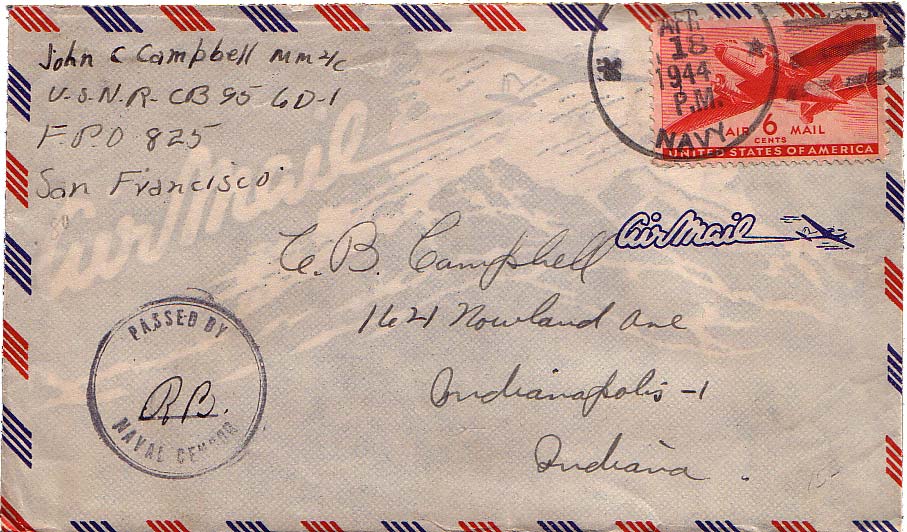 John C Campbell MM2/c
U.S.N.R. CB 95 6D-1
F.P.O 825
San Francisco
APR
18
1944
P.M.
NAVY
AIR 6 MAIL
CENTS
UNITED STATES OF AMERICA
Air Mail
Air Mail
C. B. Campbell
1621 Nowland Ave
Indianapolis-1
Indiana.
PASSED BY
RB.
NAVAL CENSOR